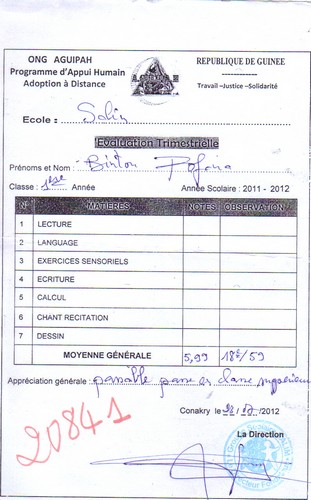 ONG AGUIPAH
Programme d'Appui Humain
Adoption à Distance
REPUBLIQUE DE GUINEE
------------
Travail –Justice –Solidarité
Ecole : Solin
Evaluation Trimestrielle
Prénoms et Nom : Binton
Classe : 1ère Année Année Scolaire : 2011 - 2012
N° MATIERES NOTES OBSERVATION
1 LECTURE
2 LANGUAGE
3 EXERCICES SENSORIELS
4 ECRITURE
5 CALCUL
6 CHANT RECITATION
7 DESSIN
MOYENNE GÉNÉRALE 5,99 18è/59
Appréciation générale : passable passe en classe supérieure
Conakry le /2012
20841
La Direction